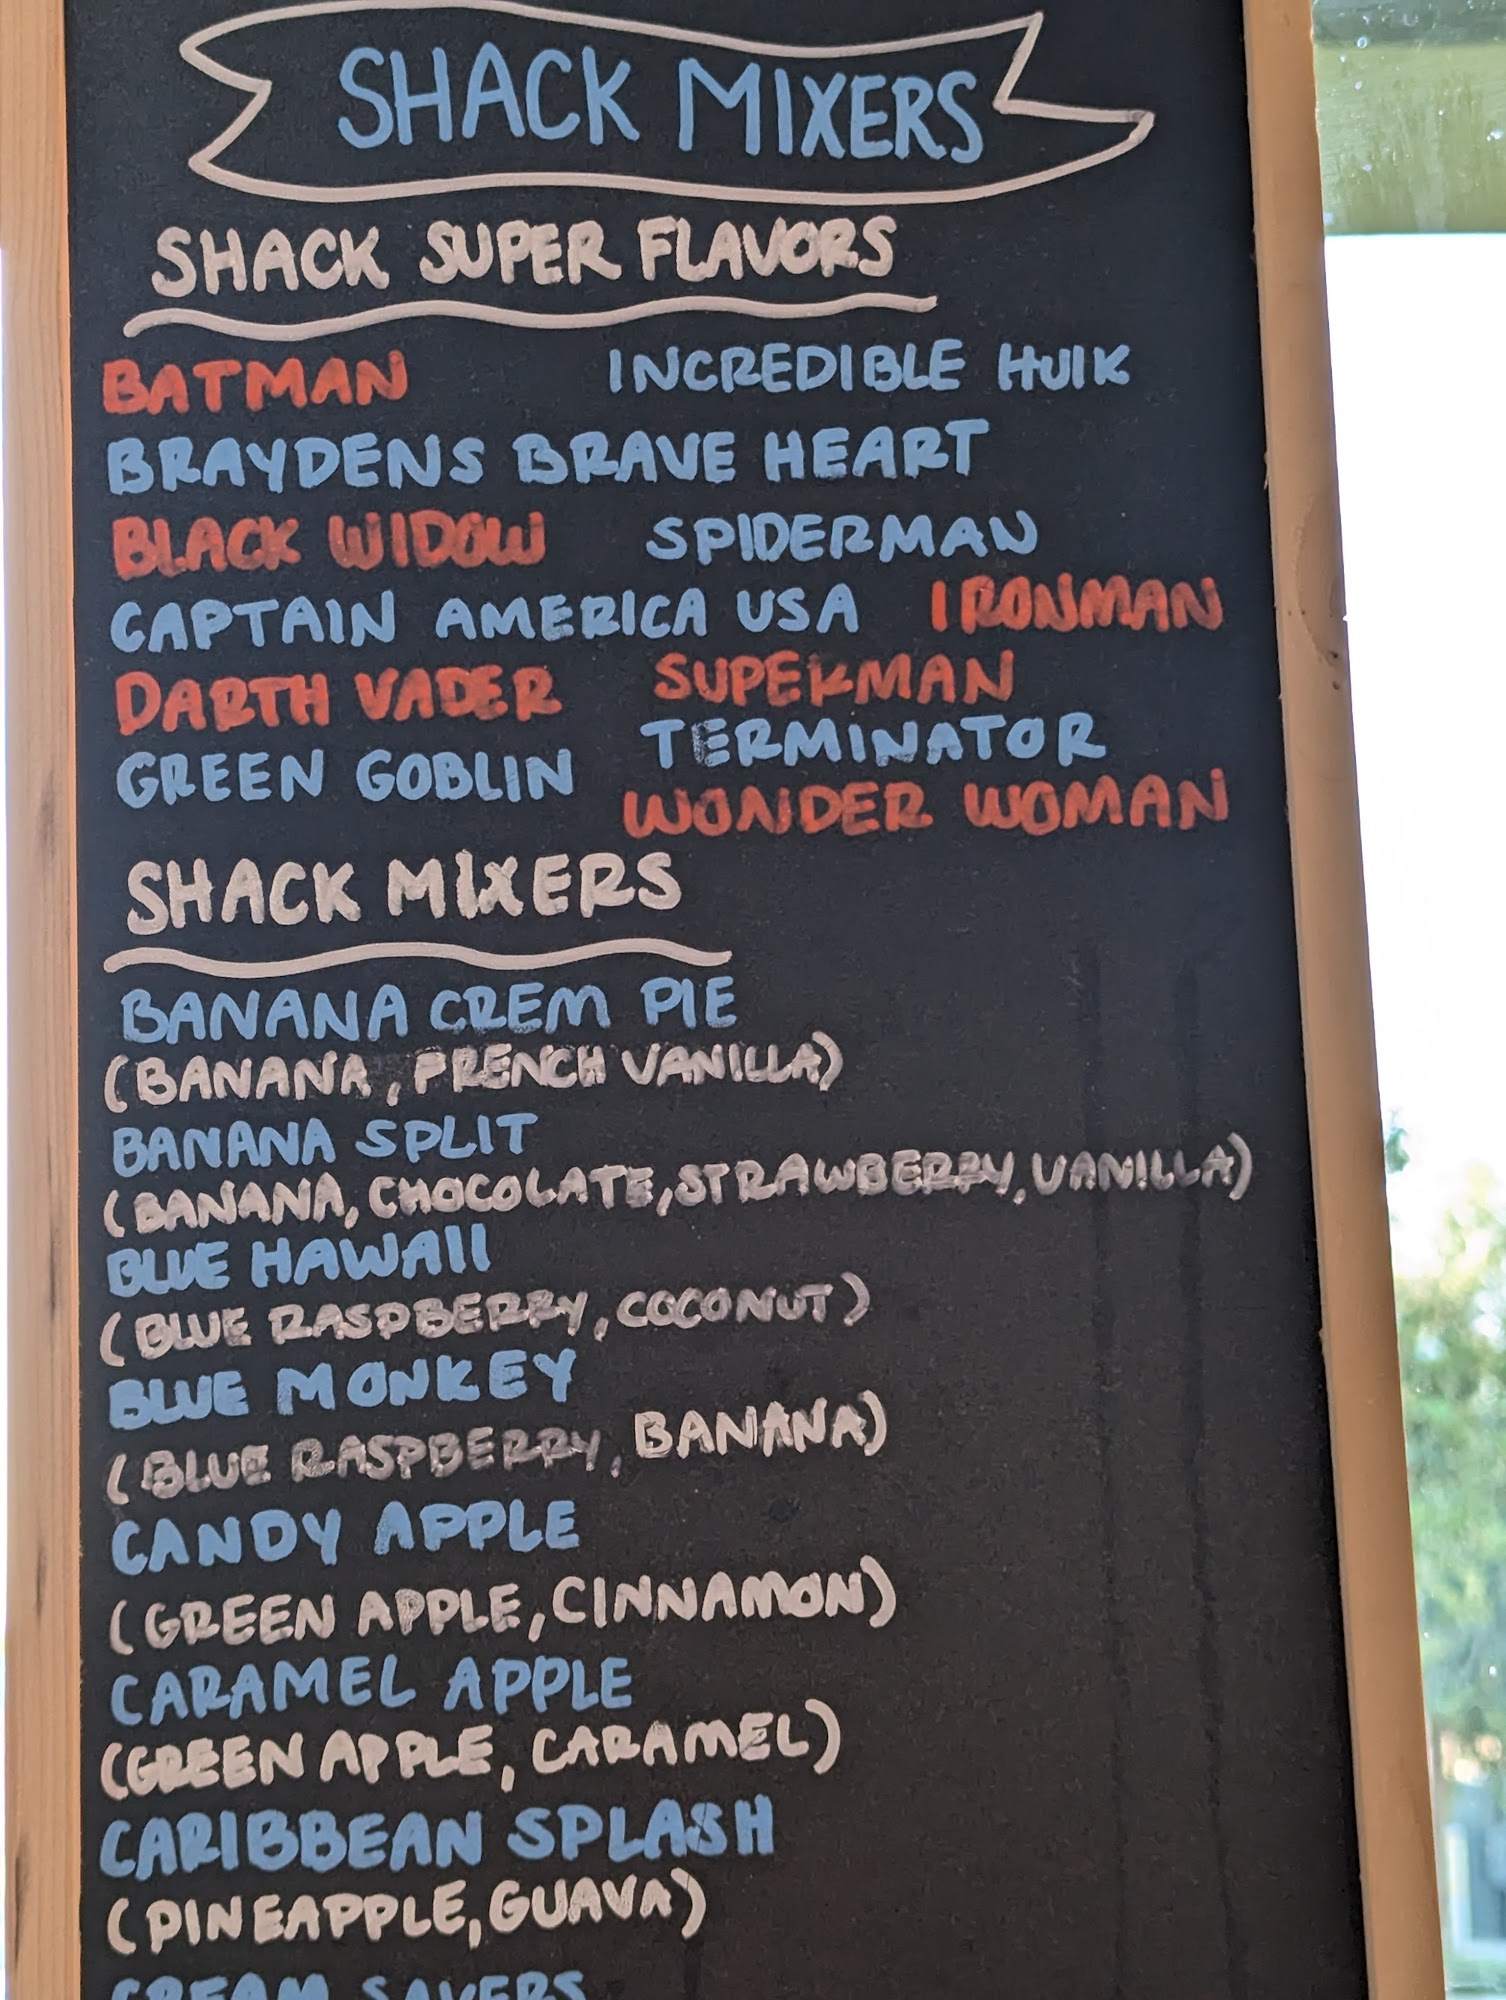 SHACK MIXERS
SHACK SUPER FLAVORS
BATMAN INCREDIBLE HUlK
BRAYDENS BRAVE HEART
BLACK WIDOW SPIDERMAN
CAPTAIN AMERICA USA IRONMAN
DARTH VADER SUPERMAN
GREEN GOBLIN TERMINATOR
WONDER WOMAN
SHACK MIXERS
BANANA CREM PIE
(BANANA, FRENCH VANILLA)
BANANA SPLIT
(BANANA, CHOCOLATE, STRAWBERRY, VANILLA)
BLUE HAWAII
(BLUE RASPBERRY, COCONUT)
BLUE MONKEY
(BLUE RASPBERRY, BANANA)
CANDY APPLE
(GREEN APPLE, CINNAMON)
CARAMEL APPLE
(GREEN APPLE, CARAMEL)
CARIBBEAN SPLASH
(PINEAPPLE, GUAVA)
CREAM SAVERS